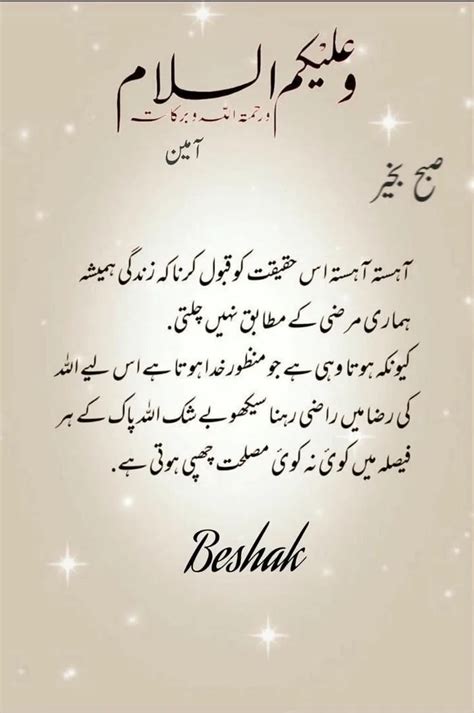 وعلیکم السلام
ورحمۃ اللہ وبرکاتہ
آمین
صبح بخیر
آہستہ آہستہ اس حقیقت کو قبول کرنا کہ زندگی ہمیشہ
ہماری مرضی کے مطابق نہیں چلتی.
کیونکہ ہوتا وہی ہے جو منظور خدا ہوتا ہے اس لیے اللہ
کی رضا میں راضی رہنا سیکھو بے شک اللہ پاک کے ہر
فیصلہ میں کوئ نہ کوئ مصلحت چھپی ہوتی ہے.
Beshak